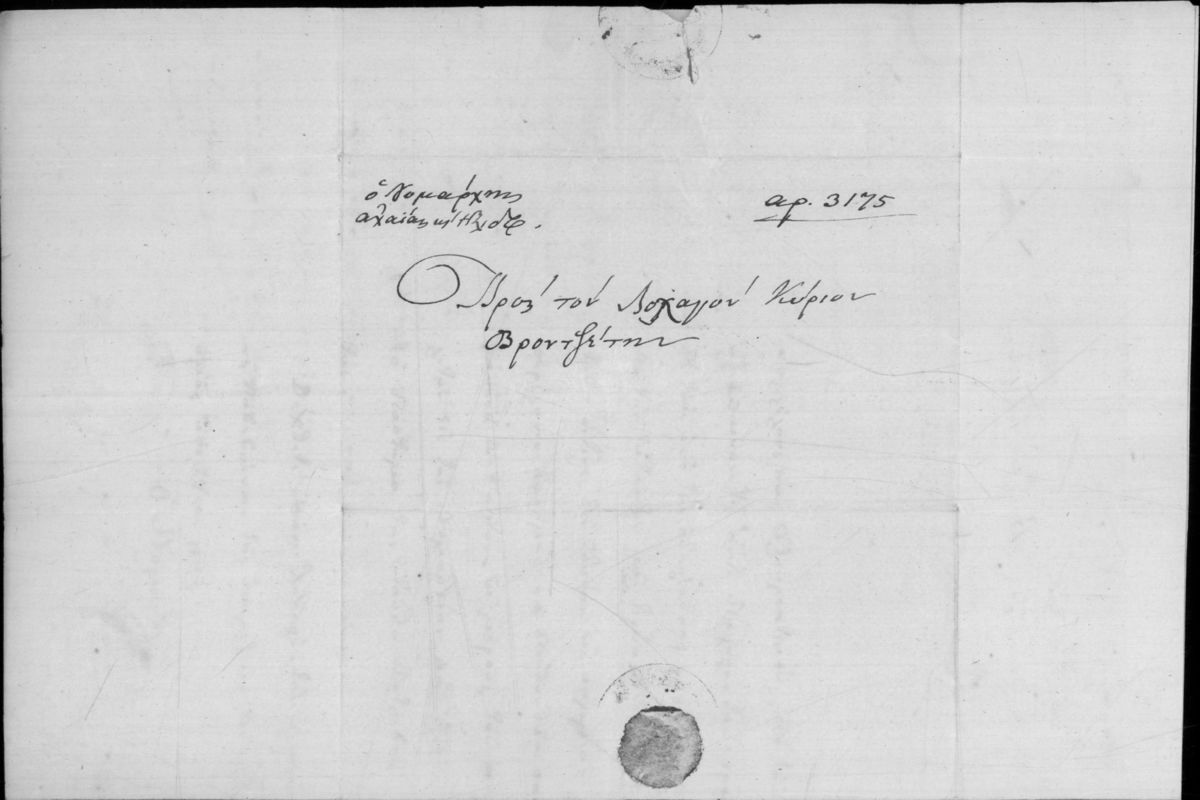 ὁ Νομάρχης
αχαΐας κ Ήλιδος.
αρ. 3175
Πρός τόν Λοχαγόν Κύριον
Βροντζέτην